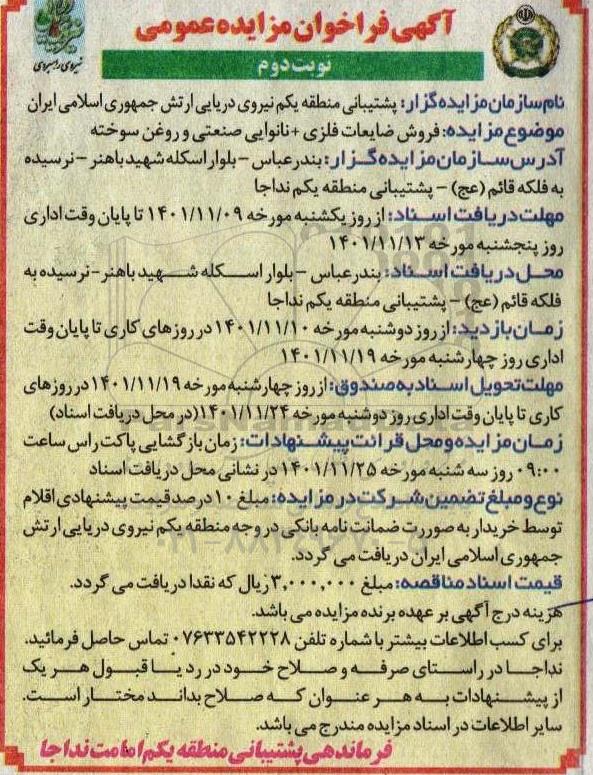 آگهی فراخوان مزایده عمومی
نوبت دوم
نیروی راهبردی
نام سازمان مزایده گزار: پشتیبانی منطقه یکم نیروی دریایی ارتش جمهوری اسلامی ایران
موضوع مزایده: فروش ضایعات فلزی +نانوایی صنعتی و روغن سوخته
آدرس سازمان مزایده گزار: بندرعباس – بلوار اسکله شهید باهنر – نرسیده
به فلکه قائم (عج) – پشتیبانی منطقه یکم نداجا
مهلت دریافت اسناد: از روز یکشنبه مورخه ۱۴۰۱/۱۱/۰۹ تا پایان وقت اداری
روز پنجشنبه مورخه ۱۴۰۱/۱۱/۱۳
محل دریافت اسناد: بندرعباس – بلوار اسکله شهید باهنر – نرسیده به
فلکه قائم (عج) – پشتیبانی منطقه یکم نداجا
زمان بازدید: از روز دوشنبه مورخه ۱۴۰۱/۱۱/۱۰ در روزهای کاری تا پایان وقت
اداری روز چهارشنبه مورخه ۱۴۰۱/۱۱/۱۹
مهلت تحویل اسناد به صندوق: از روز چهارشنبه مورخه ۱۴۰۱/۱۱/۱۹ در روزهای
کاری تا پایان وقت اداری روز دوشنبه مورخه ۱۴۰۱/۱۱/۲۴ (در محل دریافت اسناد)
زمان مزایده و محل قرائت پیشنهادات: زمان بازگشایی پاکت راس ساعت
۰۹:۰۰ روز سه شنبه مورخه ۱۴۰۱/۱۱/۲۵ در نشانی محل دریافت اسناد
نوع و مبلغ تضمین شرکت در مزایده: مبلغ ۱۰ درصد قیمت پیشنهادی اقلام
توسط خریدار به صوررت ضمانت نامه بانکی در وجه منطقه یکم نیروی دریایی ارتش
جمهوری اسلامی ایران دریافت می گردد.
قیمت اسناد مناقصه: مبلغ ۳,۰۰۰,۰۰۰ ریال که نقدا دریافت می گردد.
هزینه درج آگهی بر عهده برنده مزایده می باشد.
برای کسب اطلاعات بیشتر با شماره تلفن ۰۷۶۳۳۵۴۲۲۲۸ تماس حاصل فرمائید.
نداجا در راستای صرفه و صلاح خود در رد یا قبول هر یک
از پیشنهادات به هر عنوان که صلاح بداند مختار است.
سایر اطلاعات در اسناد مزایده مندرج می باشد.
فرماندهی پشتیبانی منطقه یکم امامت نداجا